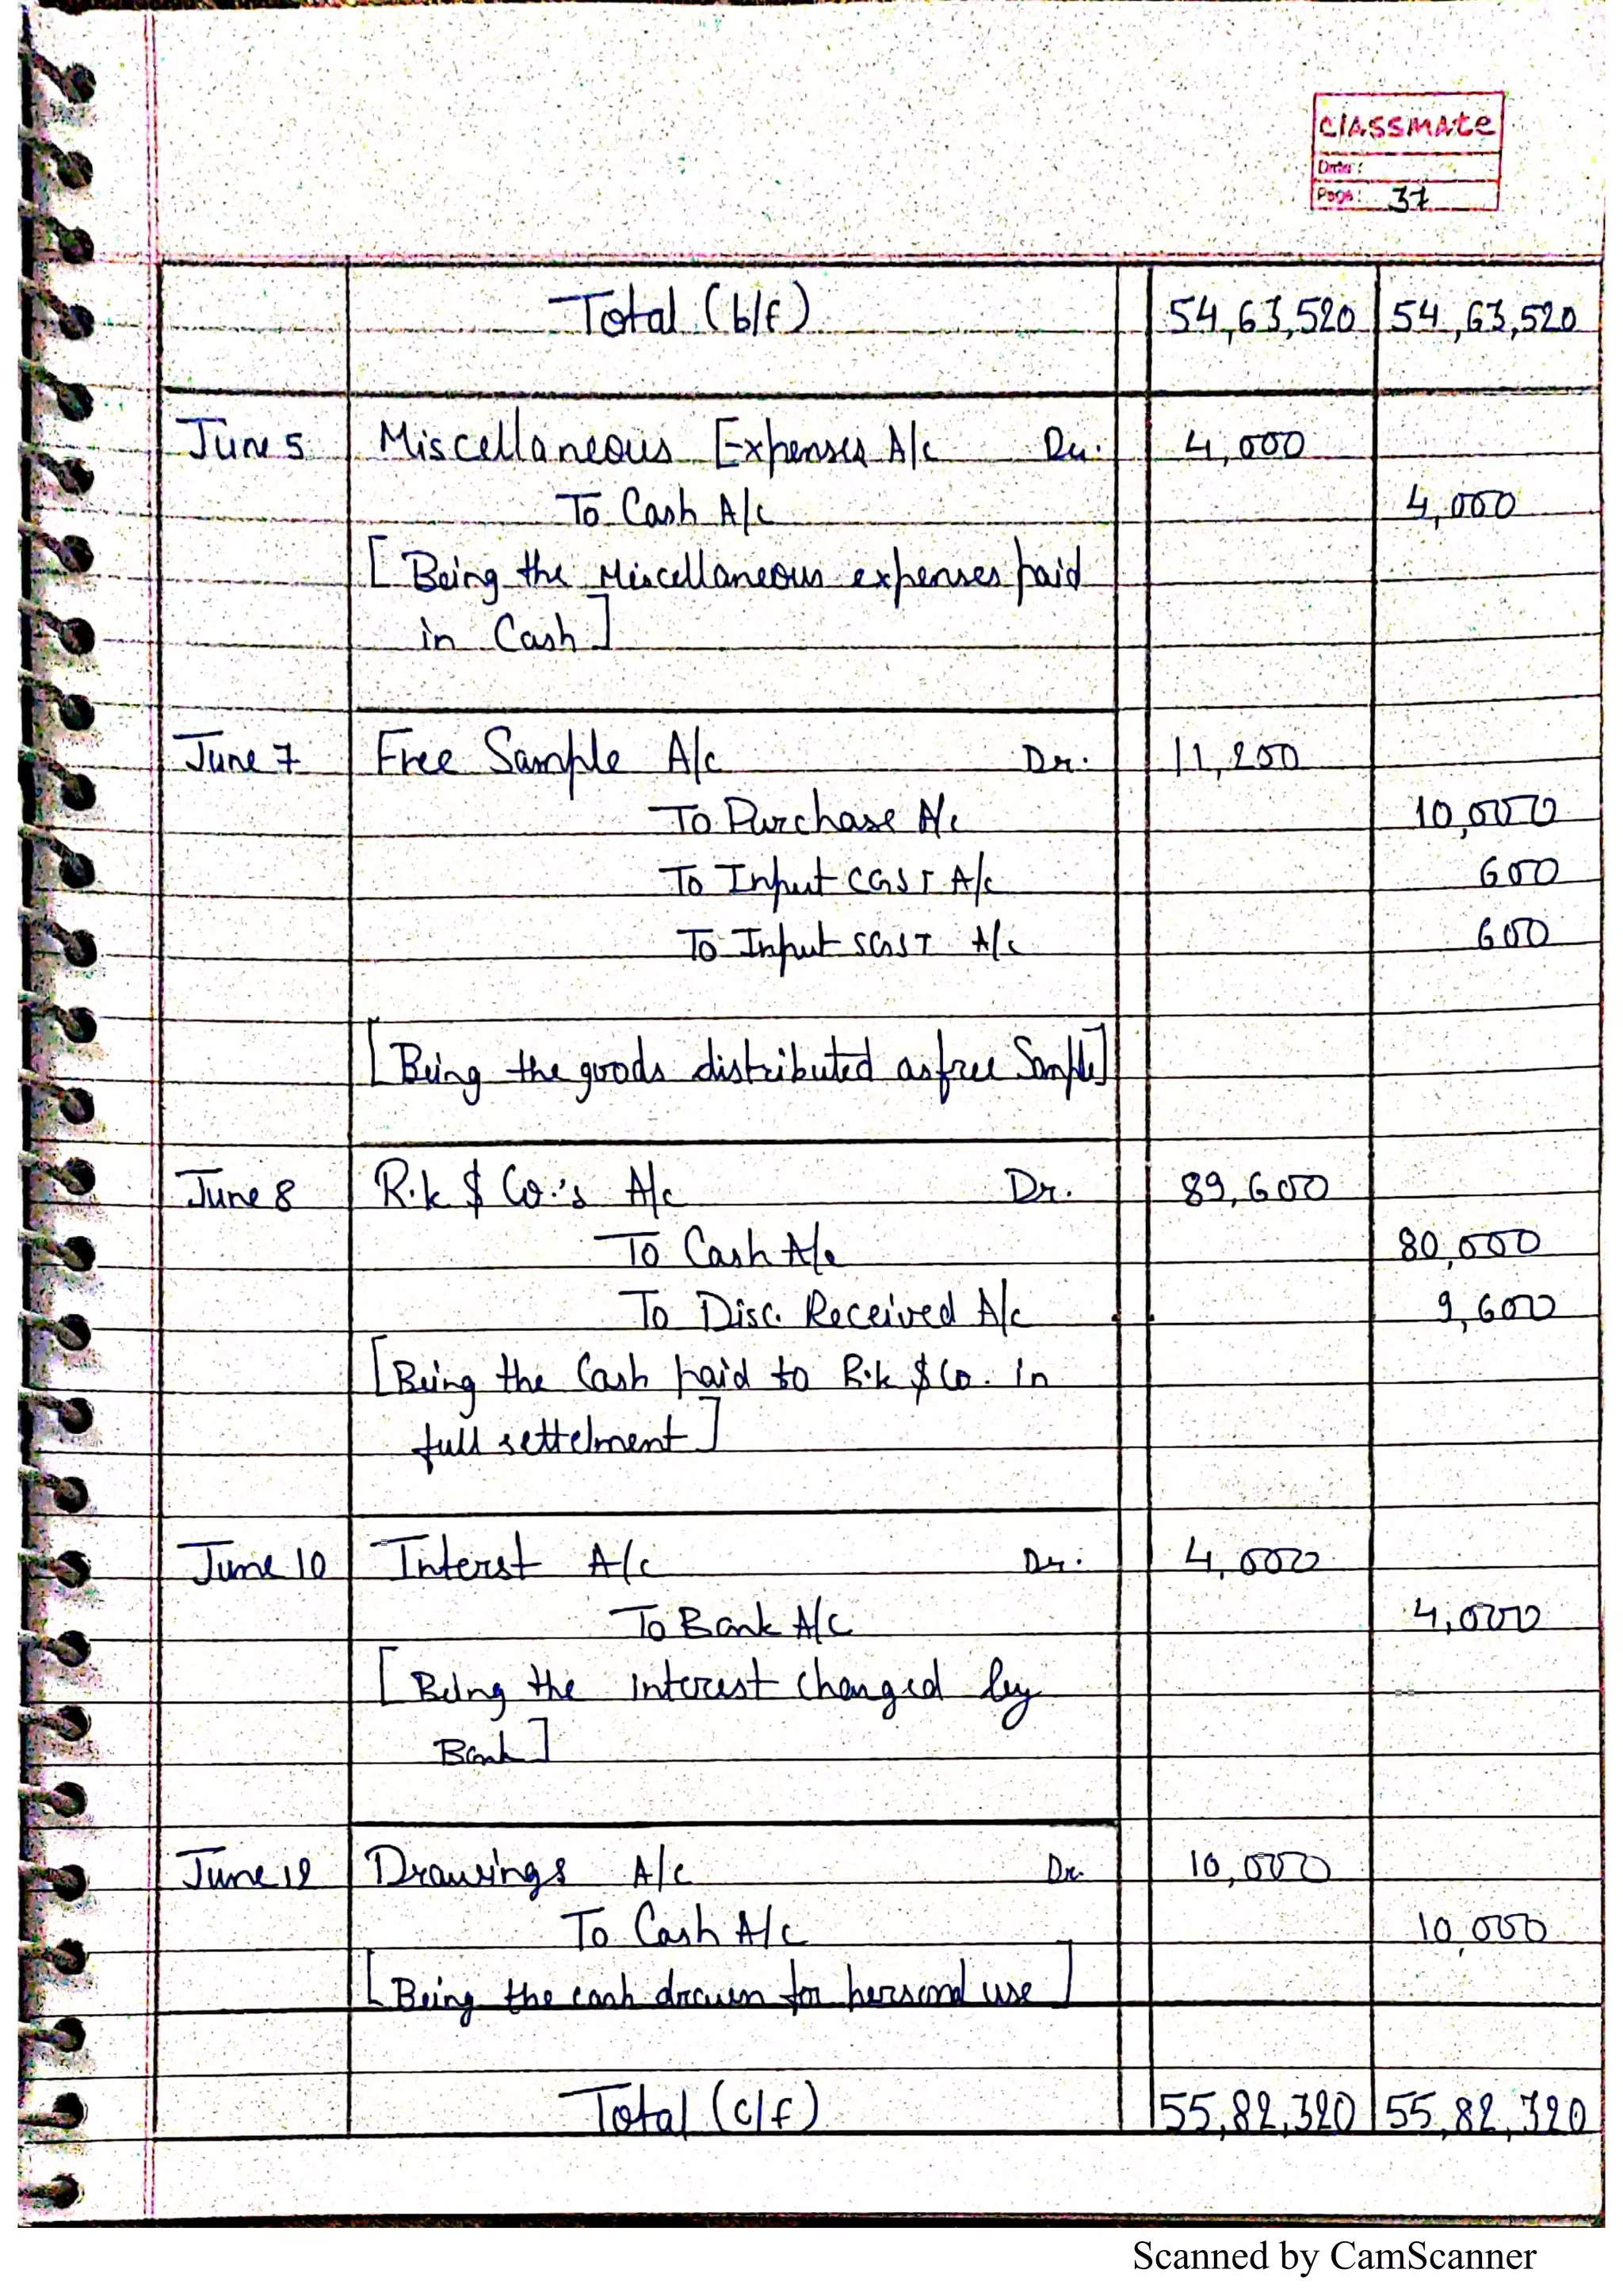 classmate
Date:
Page: 37
Total (b/f) 54,63,520 54,63,520
June 5 Miscellaneous Expenses A/c Dr. 4,000
To Cash A/c 4,000
[Being the Miscellaneous expenses paid
in Cash]
June 7 Free Sample A/c Dr. 11,200
To Purchase A/c 10,000
To Input CGST A/c 600
To Input SGST A/c 600
[Being the goods distributed as free Sample]
June 8 R.k & Co.'s A/c Dr. 89,600
To Cash A/c 80,000
To Disc. Received A/c 9,600
[Being the Cash paid to R.k & Co. in
full settelment]
June 10 Interst A/c Dr. 4,000
To Bank A/c 4,000
[Being the interest charged by
Bank]
June 12 Drawings A/c Dr. 10,000
To Cash A/c 10,000
[Being the cash drawn for personal use]
Total (c/f) 55,82,320 55,82,320
Scanned by CamScanner